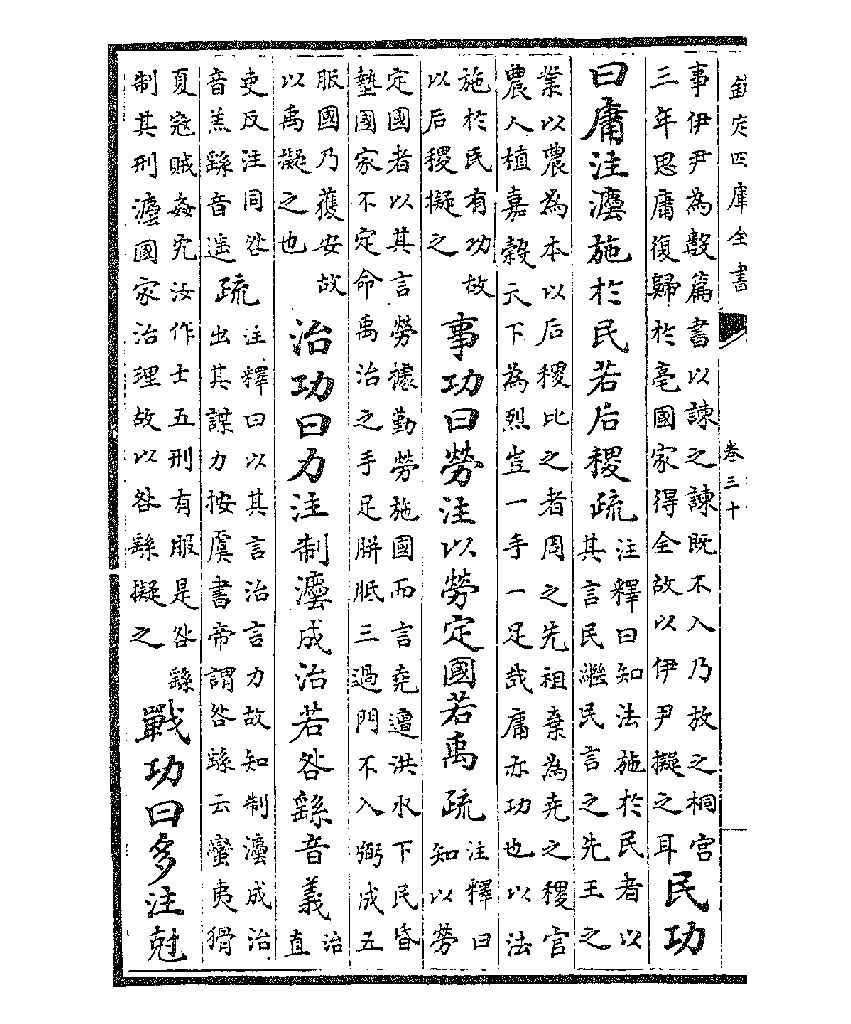 欽定四庫全書 卷三十
事伊尹為數篇書以諫之諫既不入乃放之桐宮
三年思庸復歸於亳國家得全故以伊尹擬之耳
民功
曰庸注灋施於民若后稷疏
注釋曰知法施於民者以
其言民繼民言之先王之
業以農為本以后稷比之者周之先祖棄為堯之稷官
農人植嘉穀天下為烈豈一手一足哉庸亦功也以法
施於民有功故
以后稷擬之
事功曰勞注以勞定國若禹疏
注釋曰
知以勞
定國者以其言勞據勤勞施國而言堯遭洪水下民昏
墊國家不定命禹治之手足胼胝三過門不入弼成五
服國乃獲安故
以禹擬之也
治功曰力注制灋成治若咎繇音義
治
直
吏反注同咎
音羔繇音遥
疏
注釋曰以其言治言力故知制灋成治
出其謀力按虞書帝謂咎繇云蠻夷猾
夏寇賊姦宄汝作士五刑有服是咎繇
制其刑灋國家治理故以咎繇擬之
戰功曰多注尅